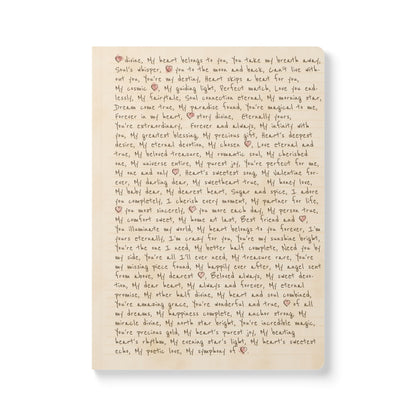 divine, My heart belongs to you, You take my breath away,
Soul's whisper, you to the moon and back, Can't live with-
out you, You're my destiny, Heart skips a beat for you,
My cosmic , My guiding light, Perfect match, Love you end-
lessly, My fairytale, Soul connection eternal, My morning star,
Dream come true, My paradise found, You're magical to me,
Forever in my heart, story divine, Eternally yours,
You're extraordinary, Forever and always, My infinity with
you, My greatest blessing, My precious gift, Heart's deepest
desire, My eternal devotion, My chosen , Love eternal and
true, My beloved treasure, My romantic soul, My cherished
one, My universe entire, My purest joy, You're perfect for me,
My one and only , Heart's sweetest song, My Valentine for-
ever, My darling dear, My sweetheart true, My honey love,
My baby dear, My dearest heart, Sugar and spice, I adore
you completely, I cherish every moment, My partner for life,
you most sincerely, you more each day, My person true,
My comfort sweet, My home at last, Best friend and ,
You illuminate my world, My heart belongs to you forever, I'm
yours eternally, I'm crazy for you, You're my sunshine bright
You're the one I need, My better half complete, Need you by
my side, You're all I'll ever need, My treasure rare, You're
my missing piece found, My happily ever after, My angel sent
from above, My dearest , Beloved always, My sweet devo-
tion, My dear heart, My always and forever, My eternal
promise, My other half divine, My heart and soul combined,
You're amazing grace, You're wonderful and true, of all
my dreams, My happiness complete, My anchor strong, My
miracle divine, My north star bright, You're incredible magic,
You're precious gold, My heart's purest joy, My beating
heart's rhythm, My evening star's light, My heart's sweetest
echo, My poetic love, My symphony of .